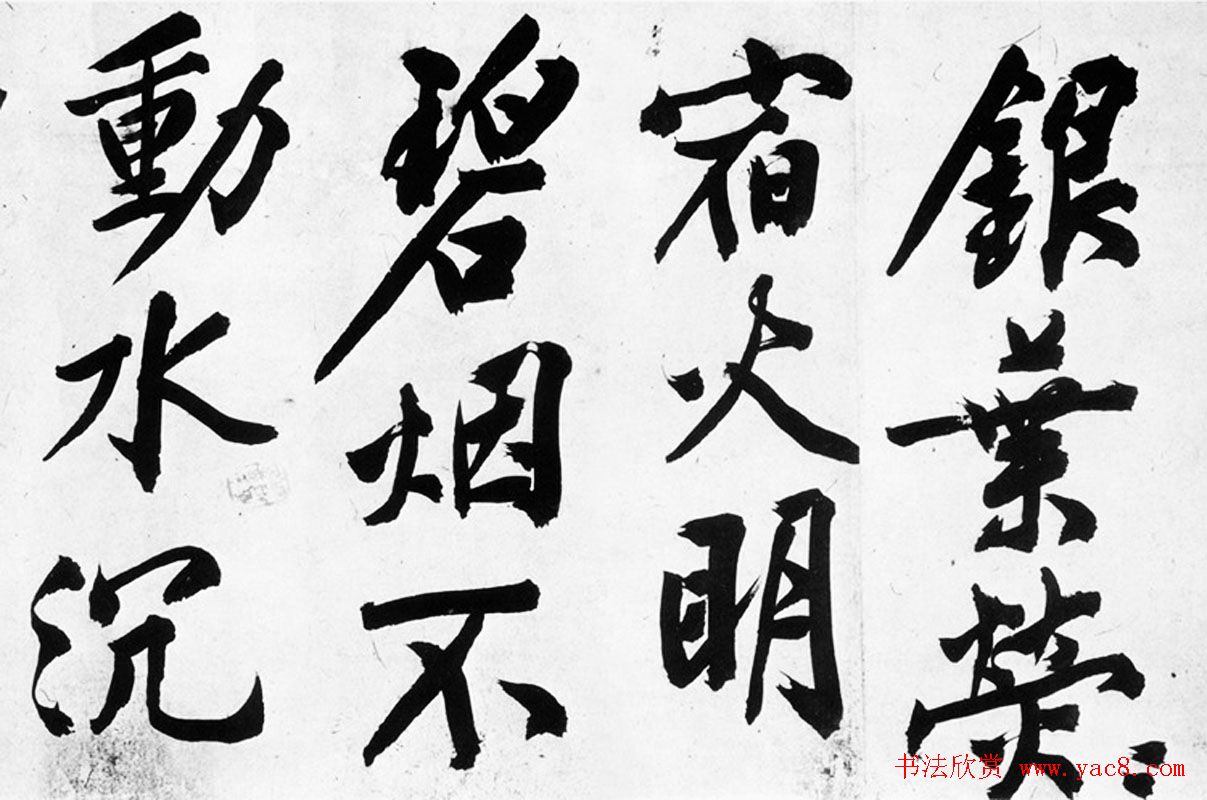 銀葉熒〻
宿火明
碧烟不
動水沉
书法欣赏 www.yac8.com